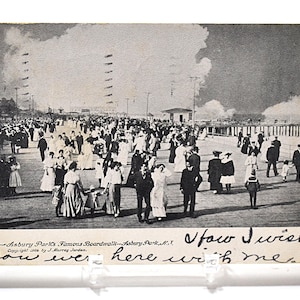 Asbury Park's Famous Boardwalk—Asbury Park, N.J.
Copyright by J. Murray Jordan
How I wish
you were here with me.